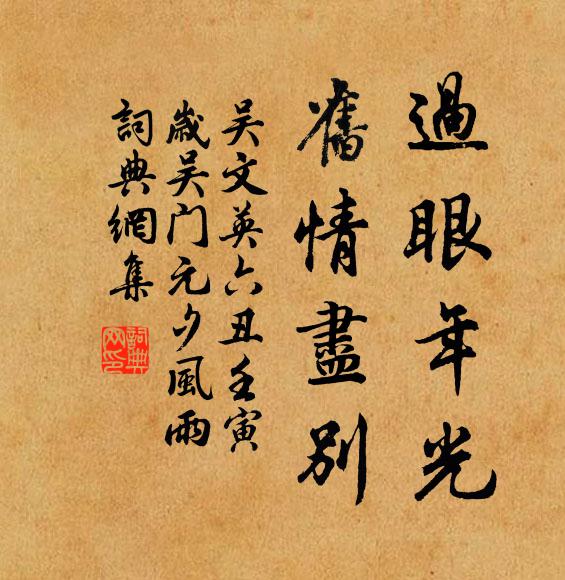 過眼年光
舊情盡別
吴文英六丑壬寅
歲吴门元夕風雨
詞典網集
詞典网印